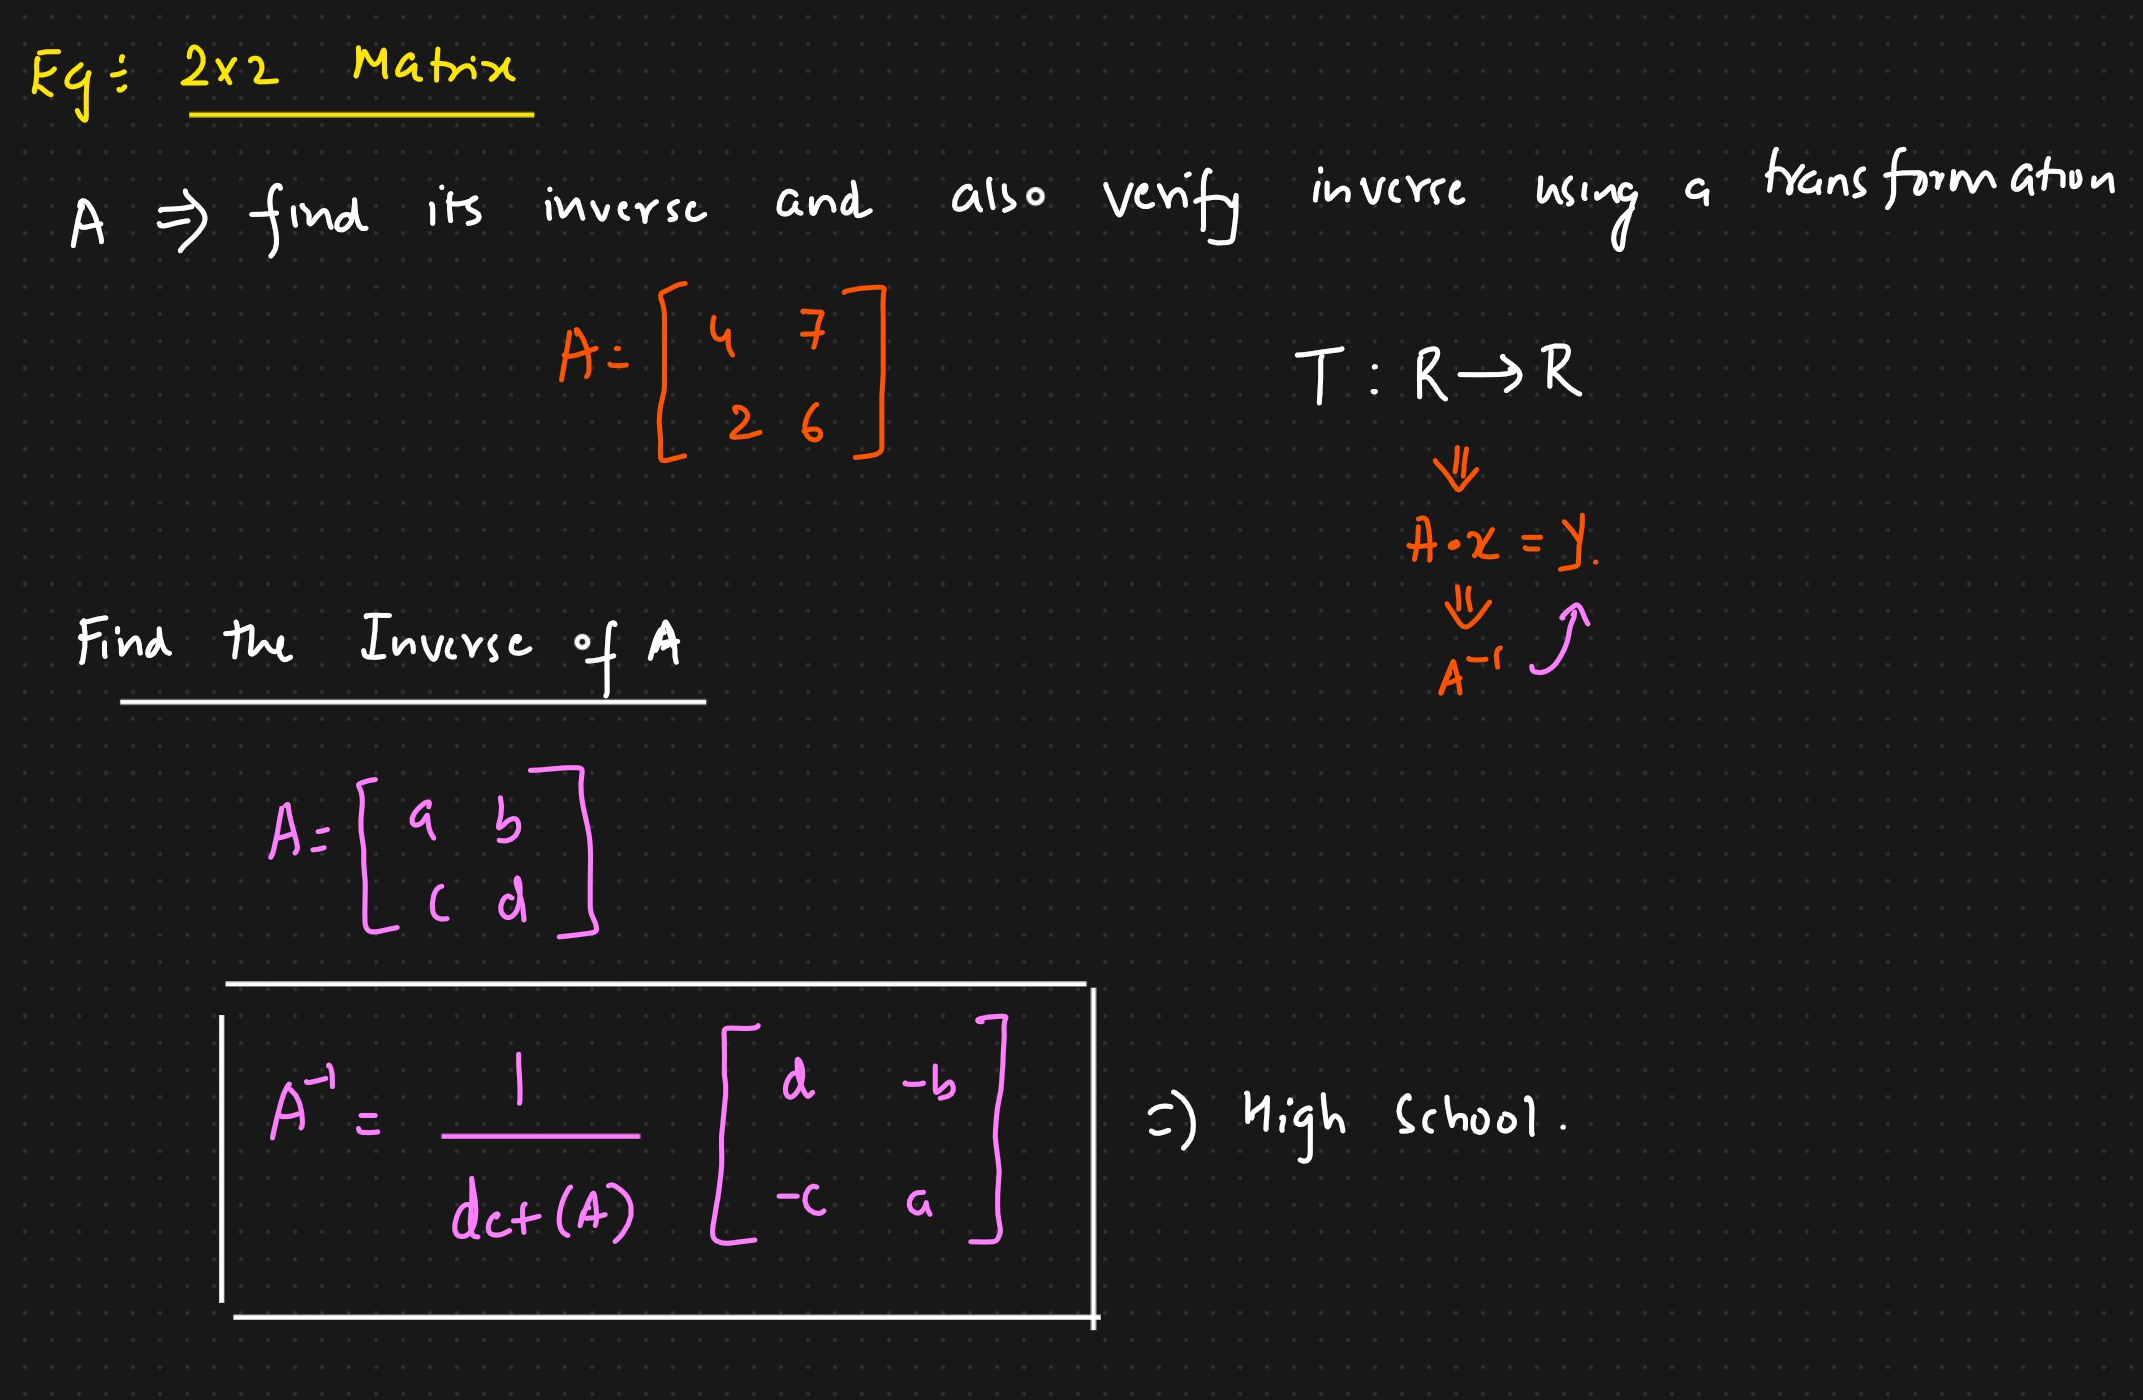 Eg:- 2x2 Matrix
A ⇒ find its inverse and also verify inverse using a transformation
A = [ 4 7
2 6 ]
T : R → R
⇓
A·x = y.
⇓
A⁻¹
Find the Inverse of A
A = [ a b
c d ]
A⁻¹ = 1 / det(A) [ d -b
-c a ]
⇒ High School.